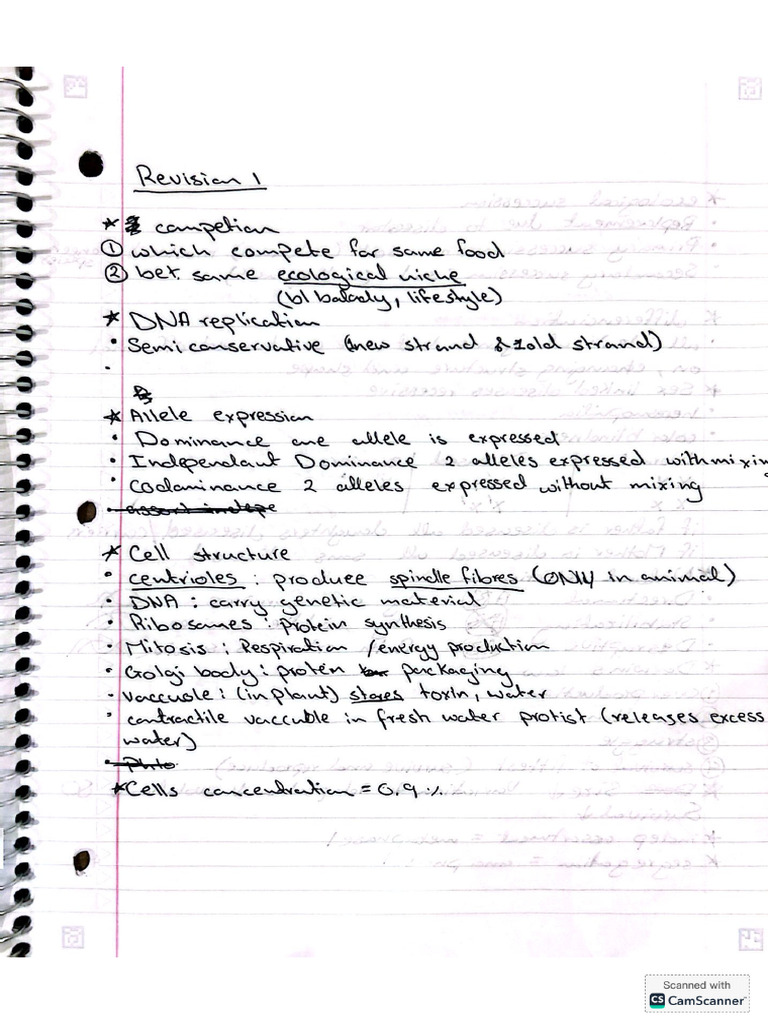 Revision 1
* competion
① which compete for same food
② bet. same ecological niche
(bl balady, lifestyle)
* DNA replication
• Semi conservative (1new strand & 1old strand)
•
* Allele expression
• Dominance one allele is expressed
• Independant Dominance 2 alleles expressed with mixing
• codominance 2 alleles expressed without mixing
* Cell structure
• centrioles : produce spindle fibres (ONLY in animal)
• DNA : carry genetic material
• Ribosomes : protein synthesis
• Mitosis : Respiration / energy production
• Golgi body : protein packaging
• vaccuole : (in plant) stores toxin, water
• contractile vaccuole in fresh water protist (releases excess
water)
• Photo
* Cells concentration = 0.9 %
Scanned with
CS CamScanner